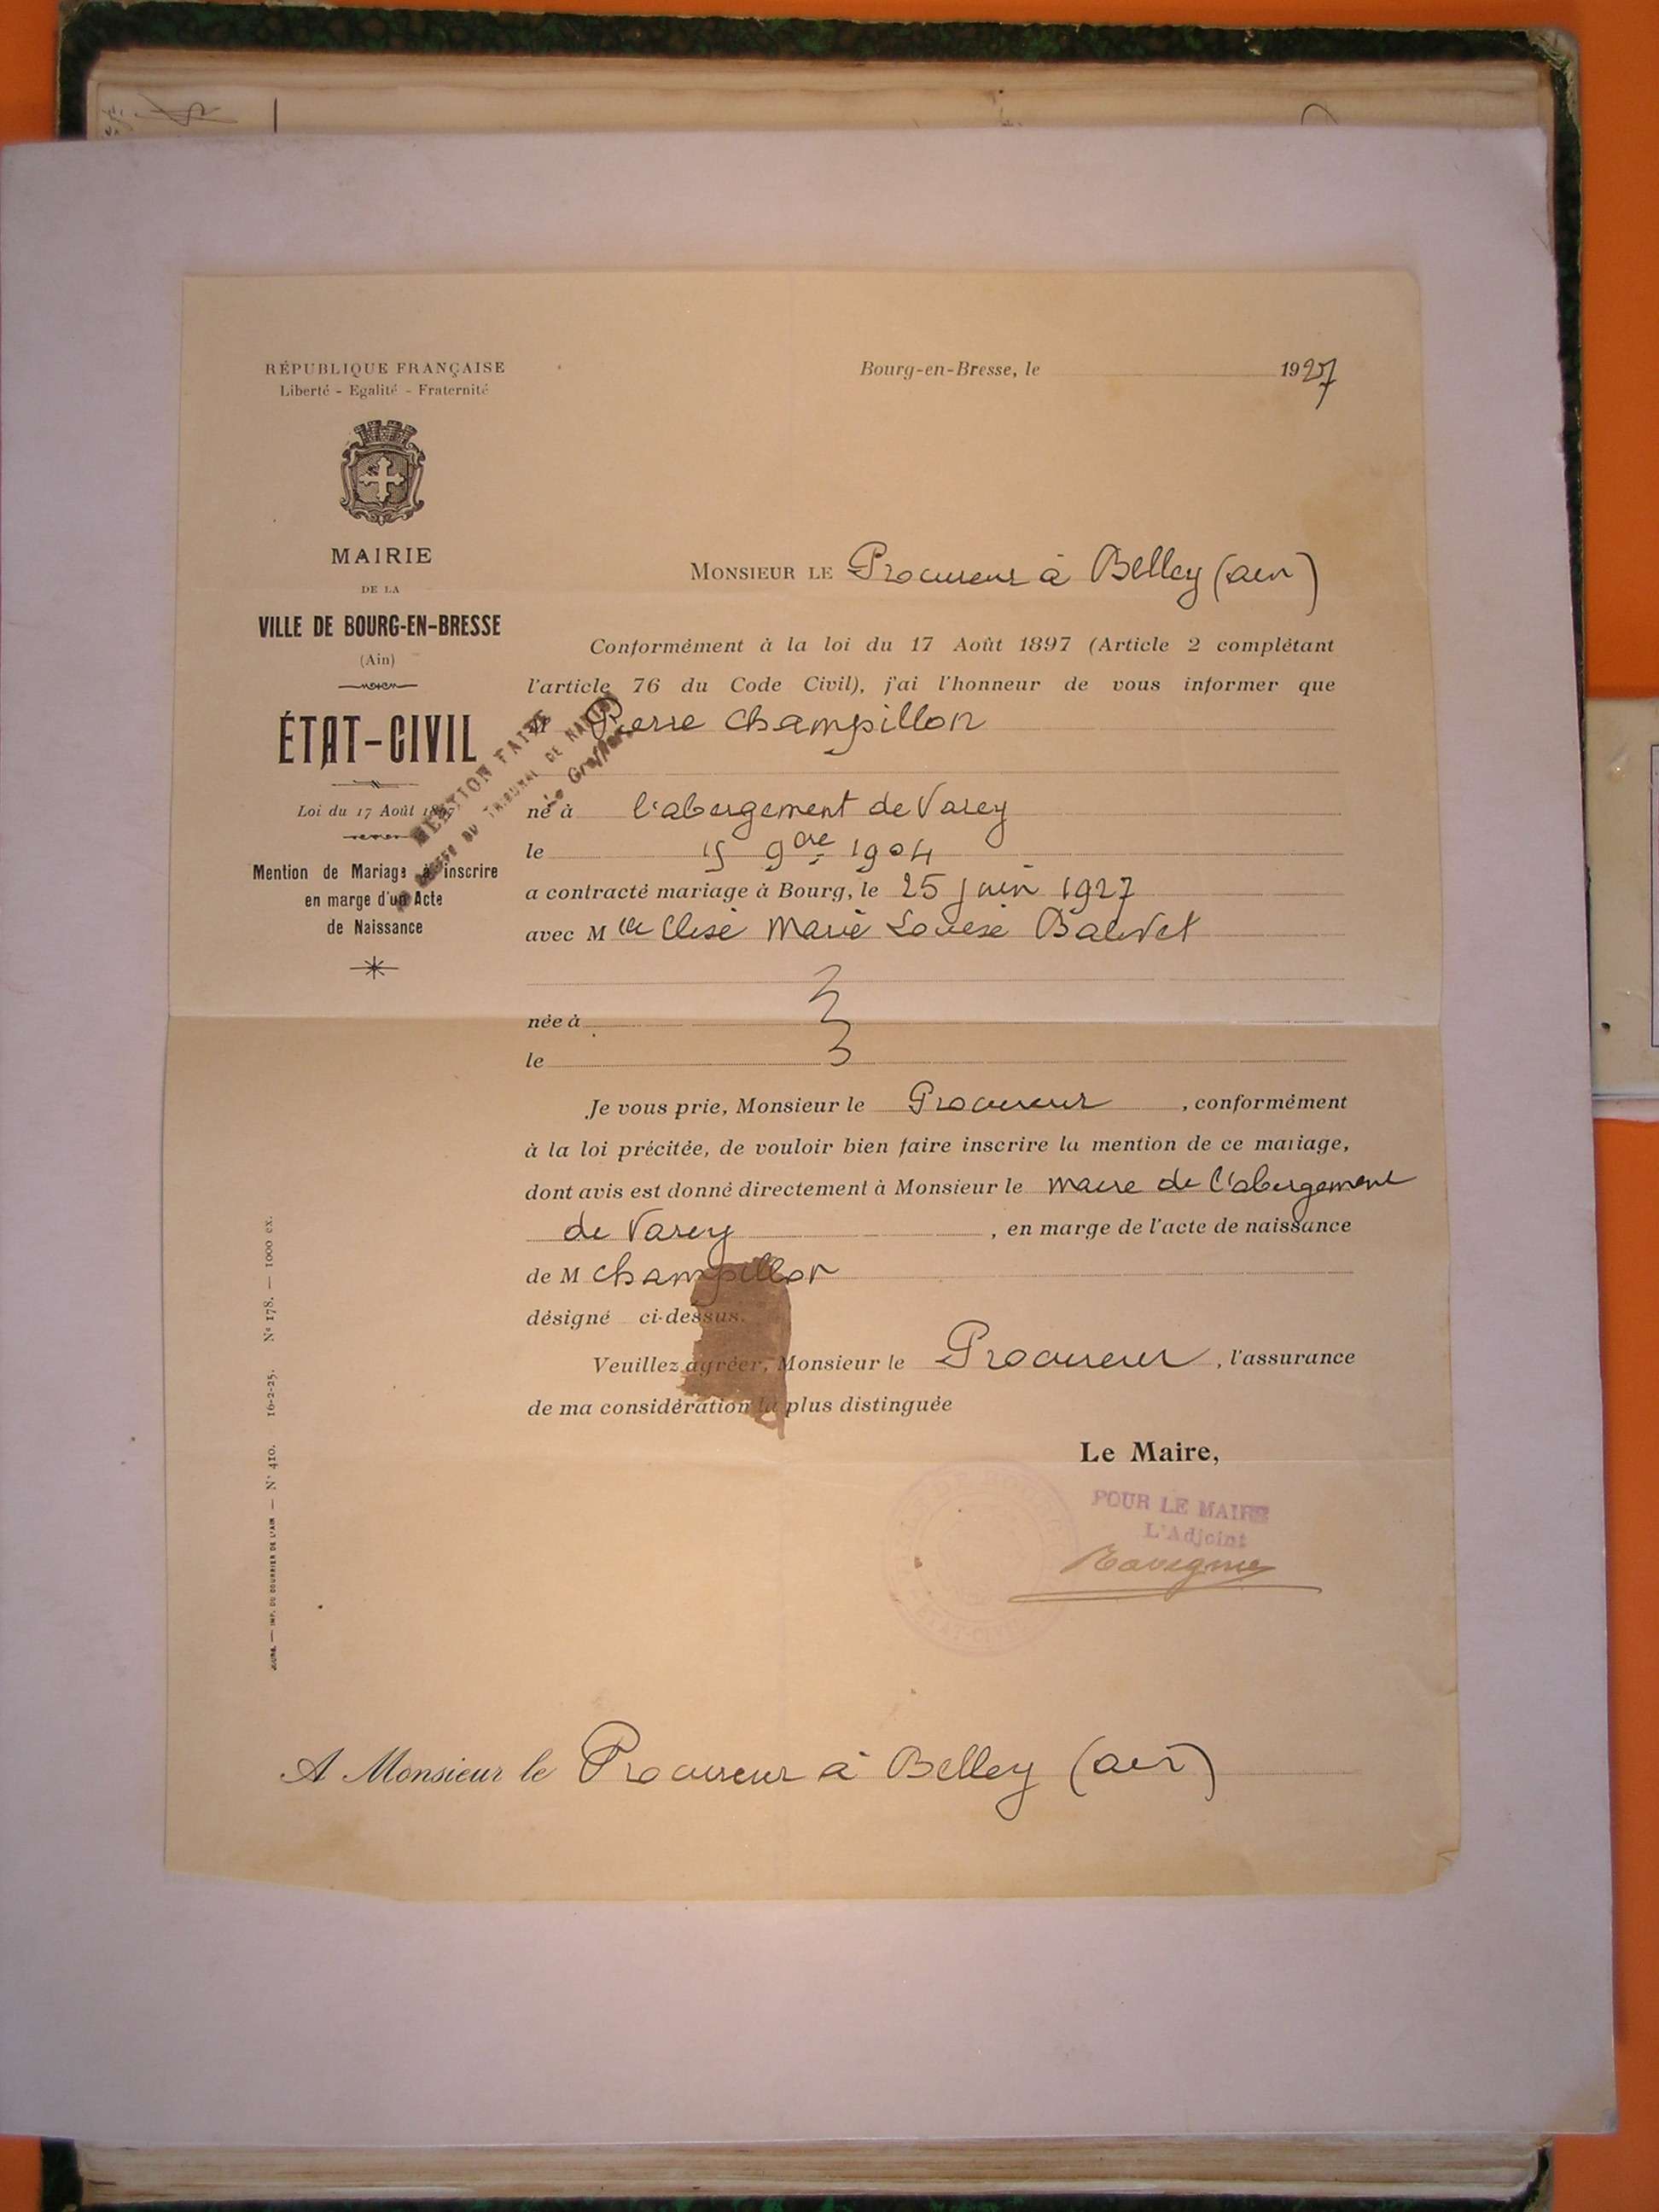 RÉPUBLIQUE FRANÇAISE
Liberté - Egalité - Fraternité
MAIRIE
DE LA
VILLE DE BOURG-EN-BRESSE
(Ain)
ÉTAT-CIVIL
Loi du 17 Août
Mention de Mariage à inscrire
en marge d'un Acte
de Naissance
MENTION FAITE
DU TRIBUNAL DE NANTUA
Le Greffier
Bourg-en-Bresse, le 1927
MONSIEUR LE Procureur à Belley (ain)
Conformément à la loi du 17 Août 1897 (Article 2 complétant
l'article 76 du Code Civil), j'ai l'honneur de vous informer que
M Pierre Champillon
né à l'abergement de Varey
le 15 9bre 1904
a contracté mariage à Bourg, le 25 juin 1927
avec M lle Elise Marie Louise Balivet
née à
le
Je vous prie, Monsieur le Procureur, conformément
à la loi précitée, de vouloir bien faire inscrire la mention de ce mariage,
dont avis est donné directement à Monsieur le maire de l'abergement
de Varey, en marge de l'acte de naissance
de M Champillon
désigné ci-dessus.
Veuillez agréer, Monsieur le Procureur, l'assurance
de ma considération la plus distinguée
Le Maire,
POUR LE MAIRE
L'Adjoint
ETAT-CIVIL
A Monsieur le Procureur à Belley (ain)
BOURG. — IMP. DU COURRIER DE L'AIN — N° 410. 16-2-25. N° 178. — 1000 ex.